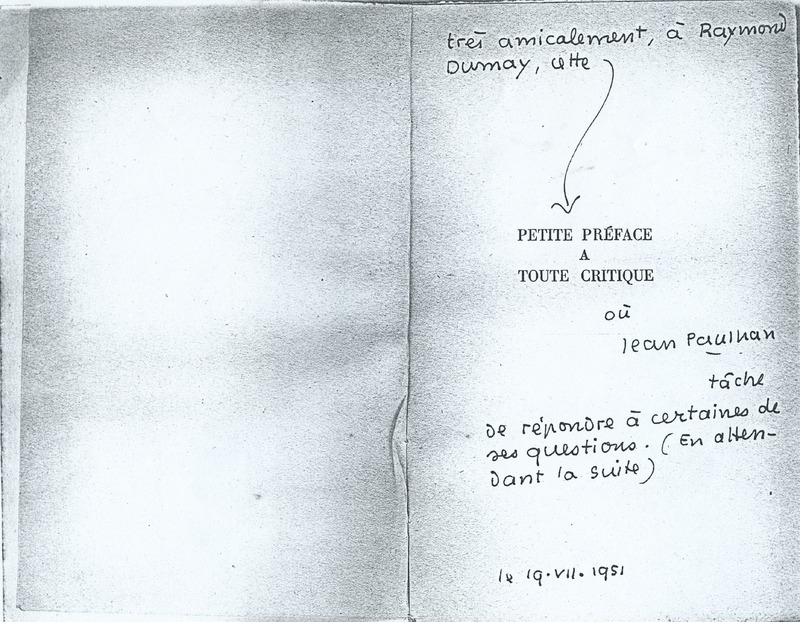 très amicalement, à Raymond
Dumay, cette
PETITE PRÉFACE
A
TOUTE CRITIQUE
où
Jean Paulhan
tâche
de répondre à certaines de
ses questions. (En atten-
dant la suite)
le 19.VII.1951